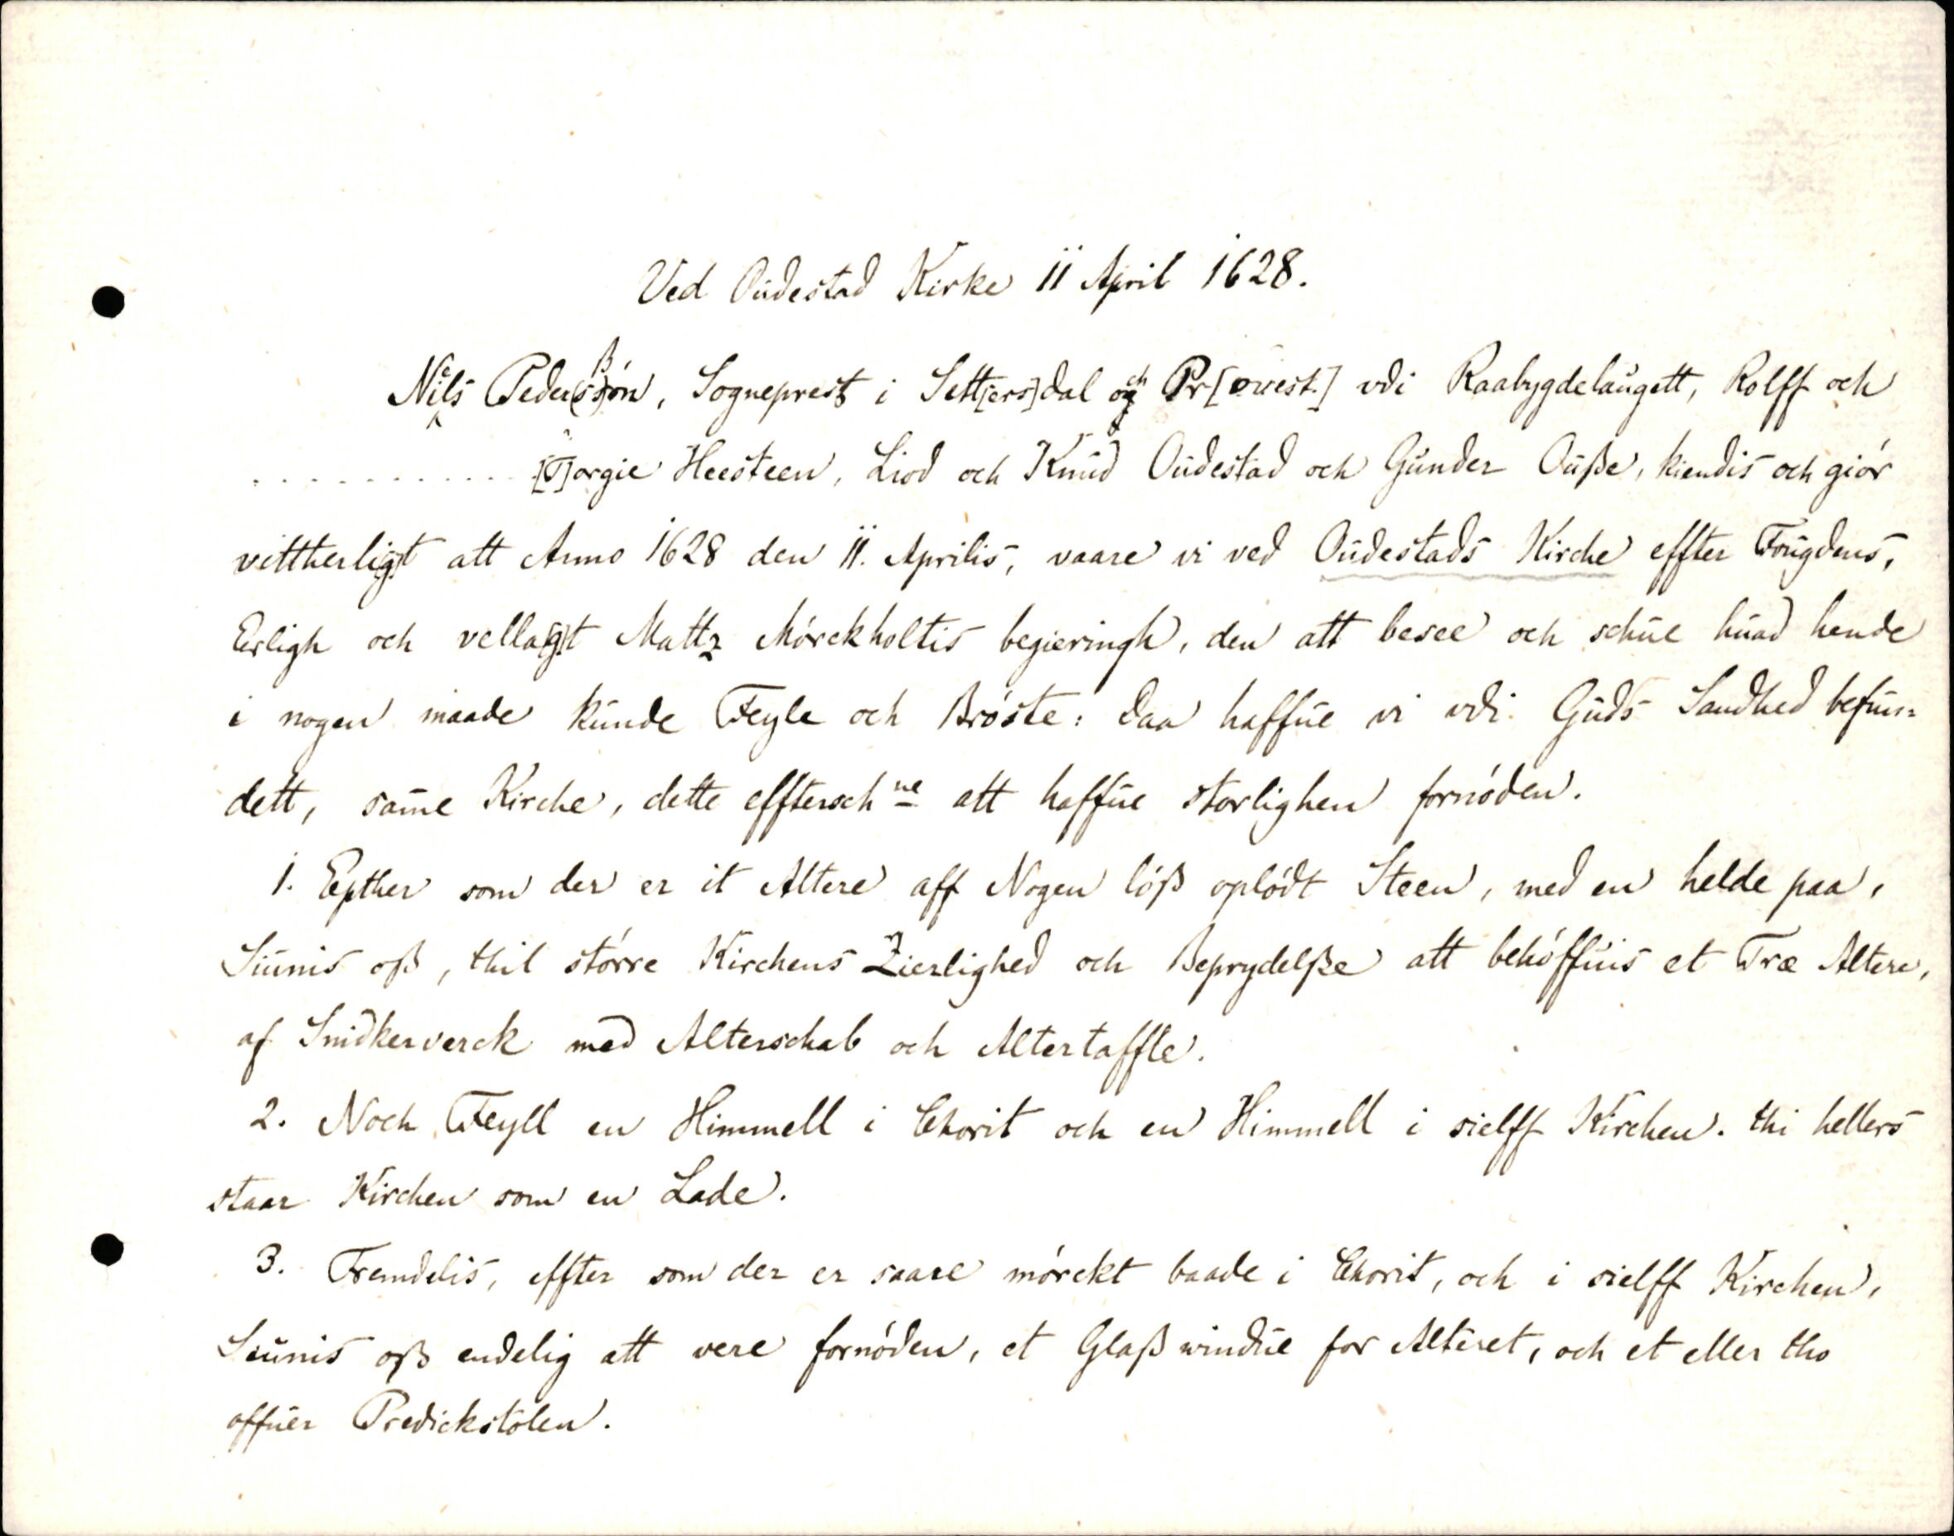 Ved Oudestad Kirke 11 April 1628.
Niels Peders(s)ßøn, Sogneprest i Sett[ers]dal och Pr[owest.] vdi Raabygdelaugett, Rolff och
. . . . . . . . . . . [T]orgie Heesteen, Liod och Knud Oudestad och Gunder Ouße, kiendis och giør
vittherlig)t att Anno 1628 den 11. Aprilis, vaare vi ved Oudestads Kirche effter Fougdens,
Erligh och vella(g)t Mattz Mørckholtis begieringh, den att besee och schue huad hende
i nogen maade kunde Feyle och Brøste: daa haffue vi vdi Guds Sandhed befun=
dett, same Kirche, dette efftersch ne att haffue storlighen fornøden.
1. Epther som der er it Altere aff Nogen løß oplødt Steen, med en helde paa,
Siunis oß, thil større Kirchens Zierlighed och Beprydelße att behøffuis et Træ Altere,
af Snidkerverck med Alterschab och Altertaffle.
2. Noch Feyll en Himmell i Chorit och en Himmell i sielff Kirchen. thi hellers
staar Kirchen som en Lade.
3. Fremdelis, effter som der er saare mørckt baade i Chorit, och i sielff Kirchen,
Siunis oß endelig att vere fornøden, et Glaß windue for Alteret, och et eller tho
offuer Predickstolen.